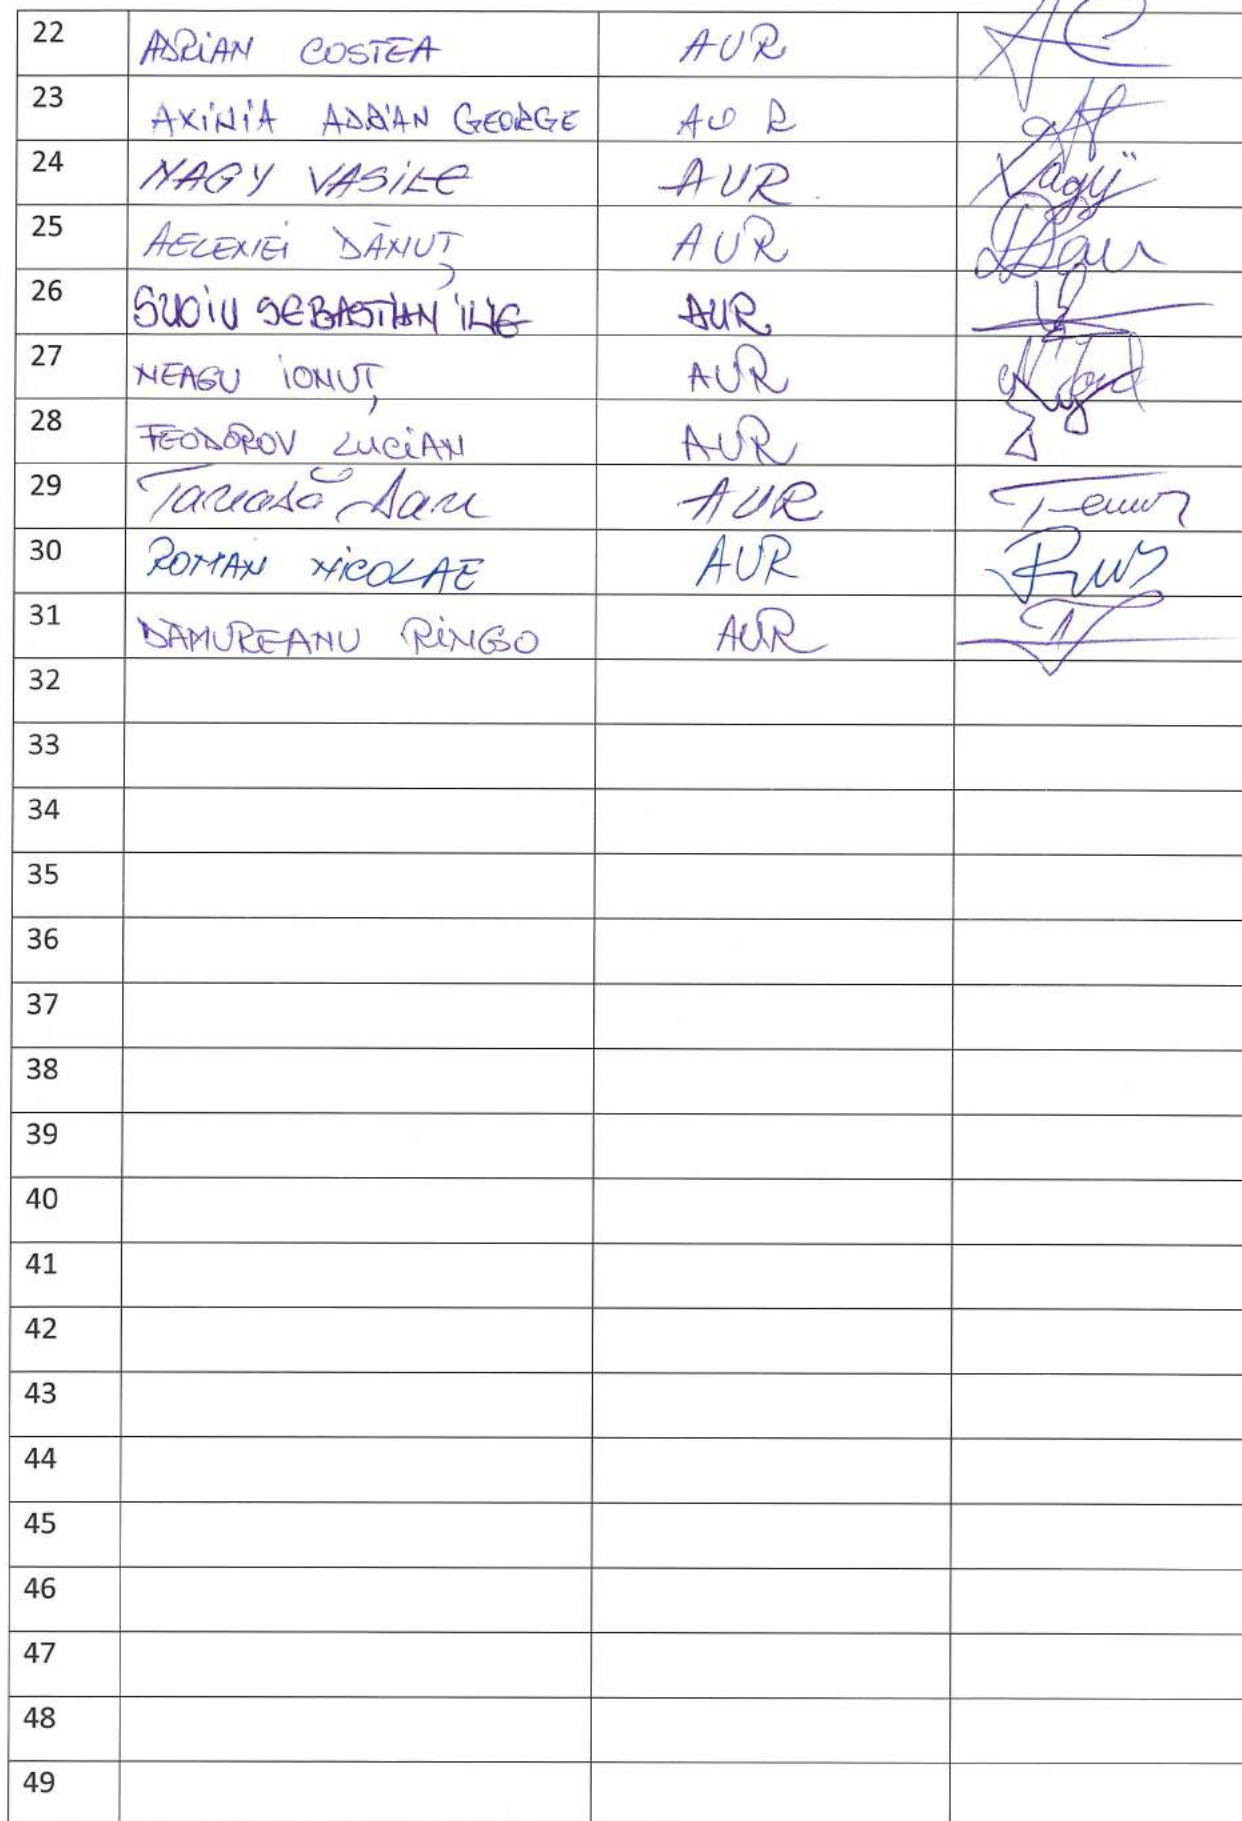 22 ADRIAN COSTEA AUR AC
23 AXINIA ADRIAN GEORGE AUR
24 NAGY VASILE AUR Nagy
25 AELENEI DĂNUȚ AUR
26 SUCIU SEBASTIAN ILIE AUR
27 NEAGU IONUȚ AUR
28 FEODOROV LUCIAN AUR
29 Tanasă Dan AUR
30 ROMAN NICOLAE AUR
31 DĂMUREANU RINGO AUR
32
33
34
35
36
37
38
39
40
41
42
43
44
45
46
47
48
49